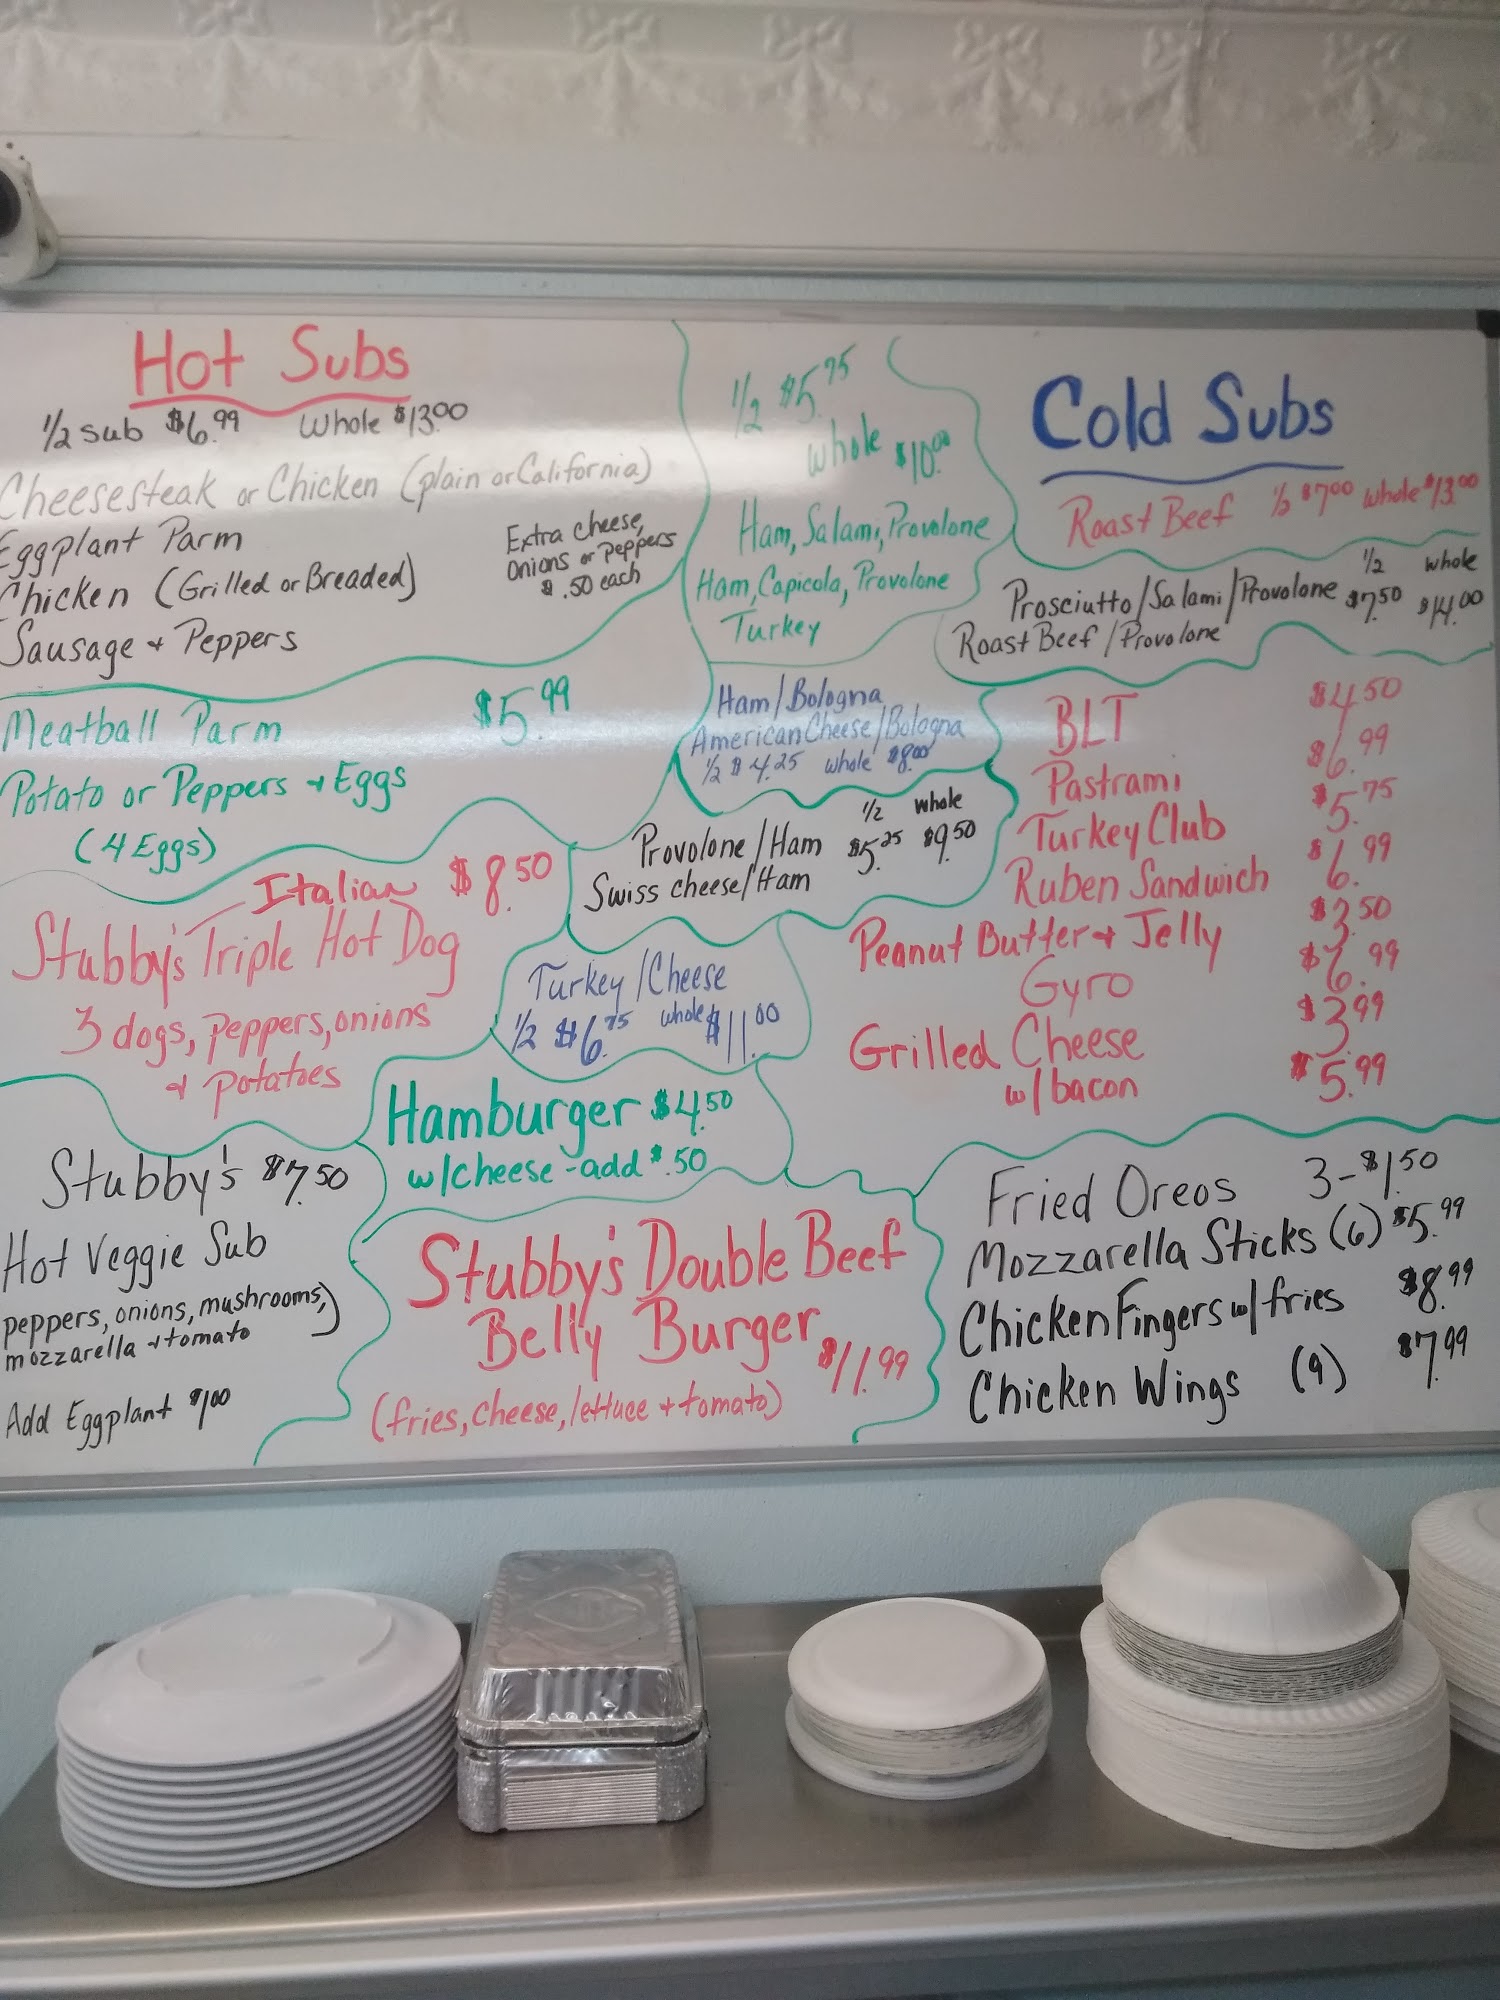 Hot Subs
1/2 Sub $6.99 Whole $13.00
Cheesesteak or Chicken (plain or California)
Eggplant Parm
Chicken (Grilled or Breaded)
Sausage + Peppers
Extra cheese,
Onions or Peppers
$.50 each
Meatball Parm $5.99
Potato or Peppers + Eggs
(4 Eggs)
Italian $8.50
Stubby's Triple Hot Dog
3 dogs, peppers, onions
+ potatoes
Stubby's $7.50
Hot Veggie Sub
peppers, onions, mushrooms,)
mozzarella + tomato
Add Eggplant $1.00
1/2 $5.75
whole $10.00
Ham, Salami, Provolone
Ham, Capicola, Provolone
Turkey
Ham/Bologna
American Cheese/Bologna
1/2 $4.25 whole $8.00
1/2 whole
Provolone/Ham $5.25 $9.50
Swiss cheese/Ham
Turkey/Cheese
1/2 $6.75 whole $11.00
Hamburger $4.50
w/cheese - add $.50
Stubby's Double Beef
Belly Burger $11.99
(fries, cheese, lettuce + tomato)
Cold Subs
Roast Beef 1/2 $7.00 whole $13.00
1/2 whole
Prosciutto/Salami/Provolone $7.50 $14.00
Roast Beef/Provolone
BLT $4.50
Pastrami $6.99
Turkey Club $5.75
Ruben Sandwich $6.99
Peanut Butter + Jelly $3.50
Gyro $6.99
Grilled Cheese $3.99
w/bacon $5.99
Fried Oreos 3-$1.50
Mozzarella Sticks (6) $5.99
Chicken Fingers w/fries $8.99
Chicken Wings (9) $7.99